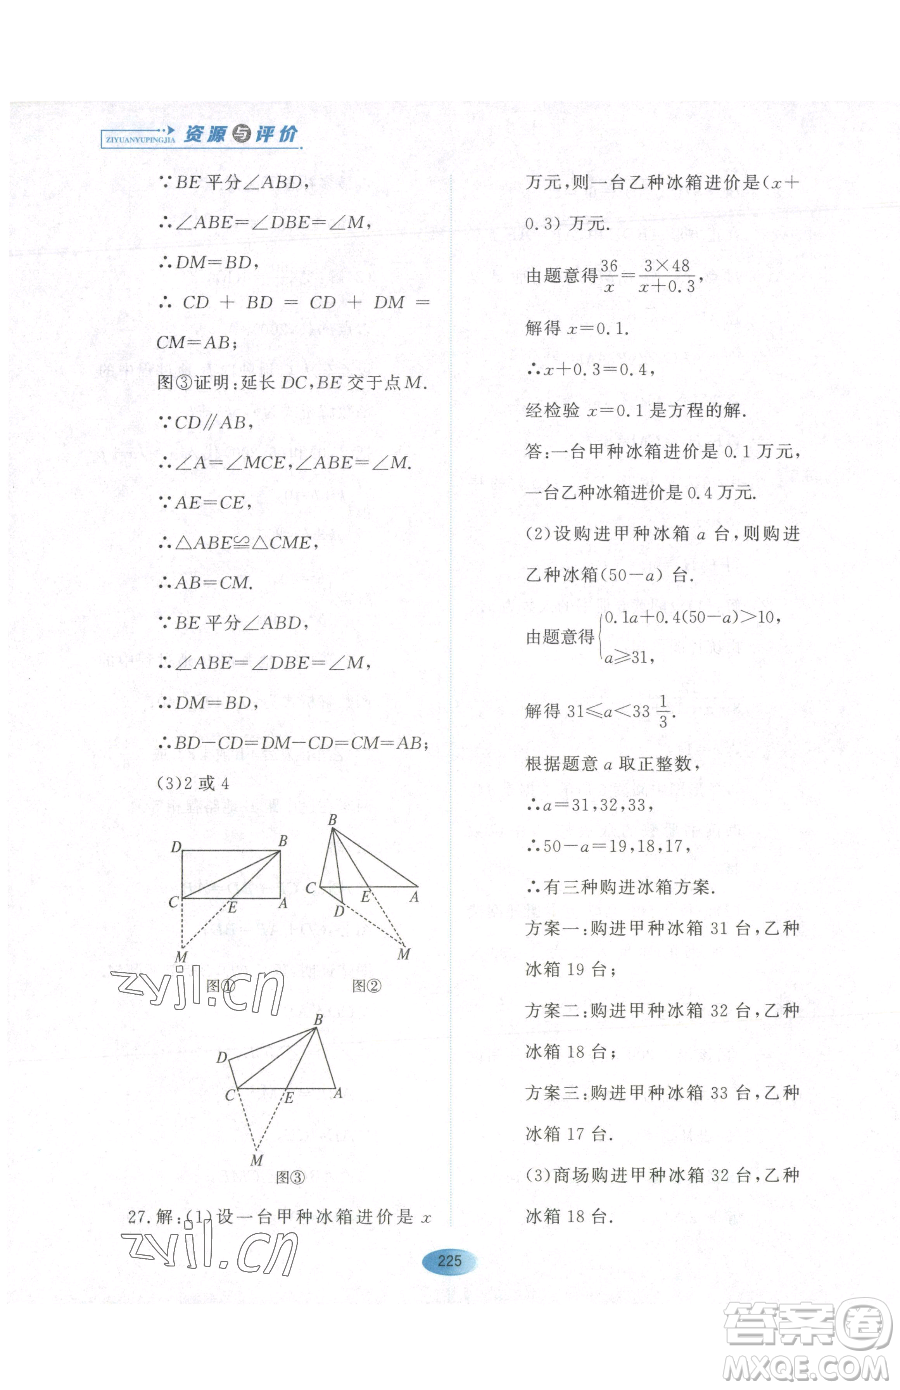 ZIYUANYUPINGJIA 资源与评价
∵BE平分∠ABD,
∴∠ABE=∠DBE=∠M,
∴DM=BD,
∴CD+BD=CD+DM=
CM=AB;
图③证明:延长DC,BE交于点M.
∵CD∥AB,
∴∠A=∠MCE,∠ABE=∠M.
∵AE=CE,
∴△ABE≌△CME,
∴AB=CM.
∵BE平分∠ABD,
∴∠ABE=∠DBE=∠M,
∴DM=BD,
∴BD-CD=DM-CD=CM=AB;
(3)2或4
D B
C E A
M
图①
B
C D E A
M
图②
B
D
C E A
M
图③
27.解:(1)设一台甲种冰箱进价是x
万元,则一台乙种冰箱进价是(x+
0.3)万元.
由题意得36/x=3×48/(x+0.3),
解得x=0.1.
∴x+0.3=0.4,
经检验x=0.1是方程的解.
答:一台甲种冰箱进价是0.1万元,
一台乙种冰箱进价是0.4万元.
(2)设购进甲种冰箱a台,则购进
乙种冰箱(50-a)台.
由题意得{0.1a+0.4(50-a)>10,
a≥31,
解得31≤a<33 1/3.
根据题意a取正整数,
∴a=31,32,33,
∴50-a=19,18,17,
∴有三种购进冰箱方案.
方案一:购进甲种冰箱31台,乙种
冰箱19台;
方案二:购进甲种冰箱32台,乙种
冰箱18台;
方案三:购进甲种冰箱33台,乙种
冰箱17台.
(3)商场购进甲种冰箱32台,乙种
冰箱18台.
225
zyjl.cn
zyjl.cn
答案圈
MXQE.COM